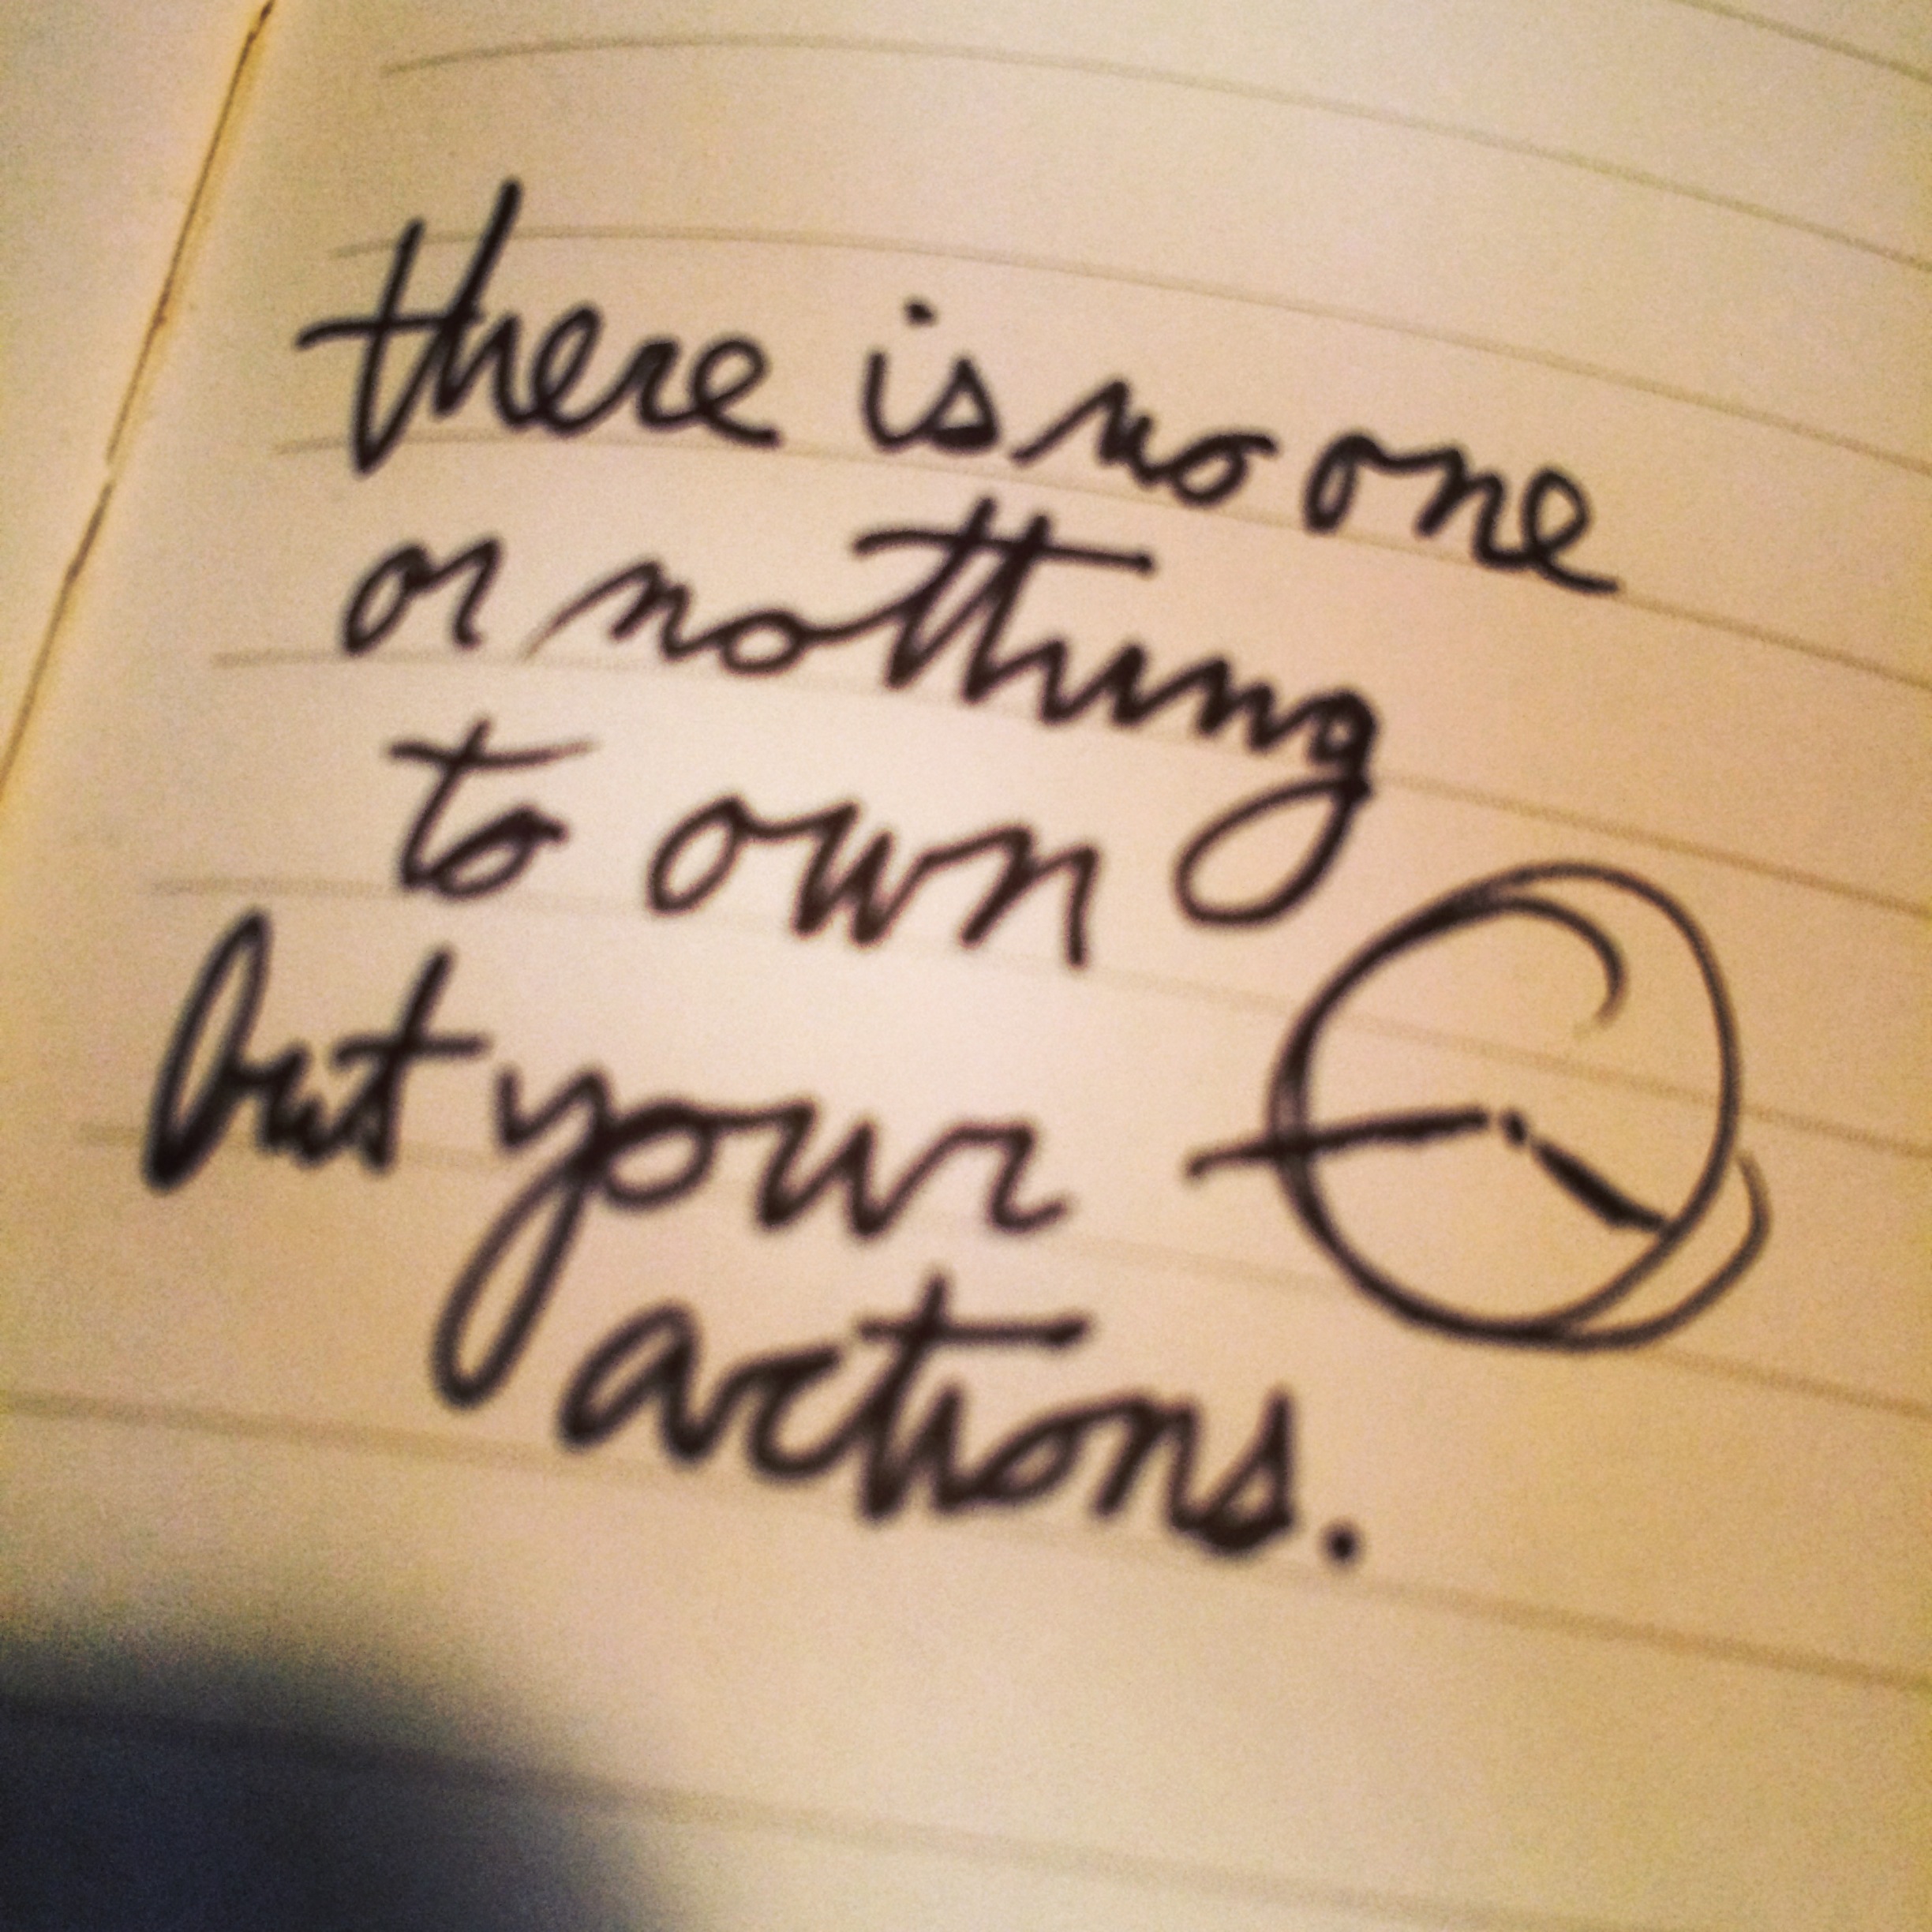 there is no one
or nothing
to own
but your
actions.